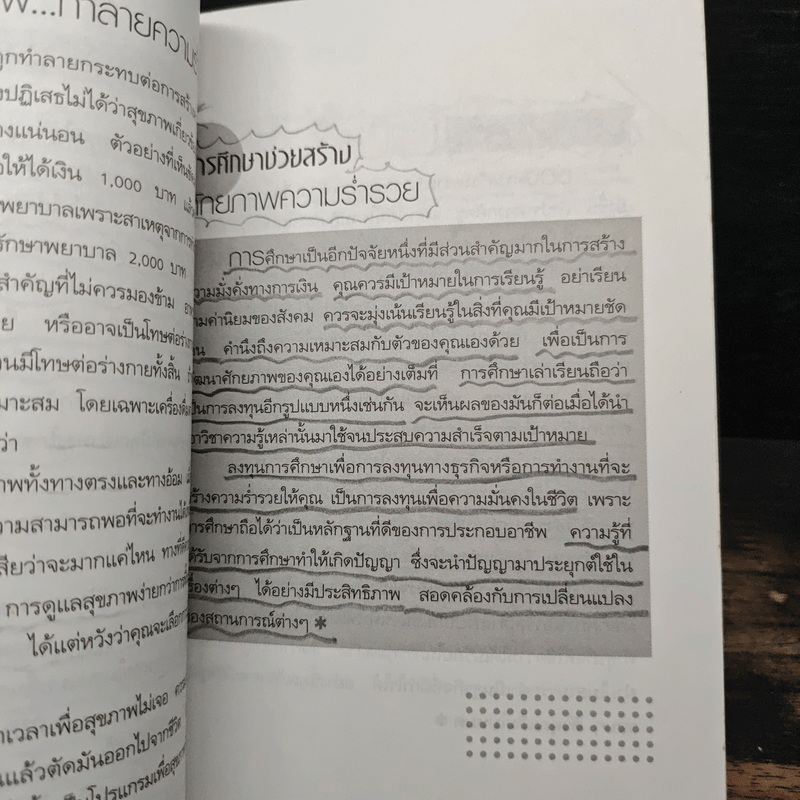 พ...ทำลายความ
ถูกทำลายกระทบต่อการสร้าง
ปฏิเสธไม่ได้ว่าสุขภาพเกี่ยวข้อง
างแน่นอน ตัวอย่างที่เห็นชัด
ให้ได้เงิน 1,000 บาท แล้ว
พยาบาลเพราะสาเหตุจากการ
รักษาพยาบาล 2,000 บาท
สำคัญที่ไม่ควรมองข้าม
ย หรืออาจเป็นโทษต่อร่าง
วนมีโทษต่อร่างกายทั้งสิ้น
มาะสม โดยเฉพาะเครื่องดื่ม
ว่า
าพทั้งทางตรงและทางอ้อม
วามสามารถพอที่จะทำงานได้
สียว่าจะมากแค่ไหน ทางที่ดี
การดูแลสุขภาพง่ายกว่าการ
ได้แต่หวังว่าคุณจะเลือก
าเวลาเพื่อสุขภาพไม่เจอ
นแล้วตัดมันออกไปจากชีวิต
เป็นโปรแกรมเพื่อสุขภ
ารศึกษาช่วยสร้าง
ักยภาพความร่ำรวย
การศึกษาเป็นอีกปัจจัยหนึ่งที่มีส่วนสำคัญมากในการสร้าง
วามมั่งคั่งทางการเงิน คุณควรมีเป้าหมายในการเรียนรู้ อย่าเรียน
ามค่านิยมของสังคม ควรจะมุ่งเน้นเรียนรู้ในสิ่งที่คุณมีเป้าหมายชัด
จน คำนึงถึงความเหมาะสมกับตัวของคุณเองด้วย เพื่อเป็นการ
ัฒนาศักยภาพของคุณเองได้อย่างเต็มที่ การศึกษาเล่าเรียนถือว่า
ป็นการลงทุนอีกรูปแบบหนึ่งเช่นกัน จะเห็นผลของมันก็ต่อเมื่อได้นำ
อาวิชาความรู้เหล่านั้นมาใช้จนประสบความสำเร็จตามเป้าหมาย
ลงทุนการศึกษาเพื่อการลงทุนทางธุรกิจหรือการทำงานที่จะ
ร้างความร่ำรวยให้คุณ เป็นการลงทุนเพื่อความมั่นคงในชีวิต เพราะ
ารศึกษาถือได้ว่าเป็นหลักฐานที่ดีของการประกอบอาชีพ ความรู้ที่
ด้รับจากการศึกษาทำให้เกิดปัญญา ซึ่งจะนำปัญญามาประยุกต์ใช้ใน
รื่องต่างๆ ได้อย่างมีประสิทธิภาพ สอดคล้องกับการเปลี่ยนแปลง
องสถานการณ์ต่างๆ *